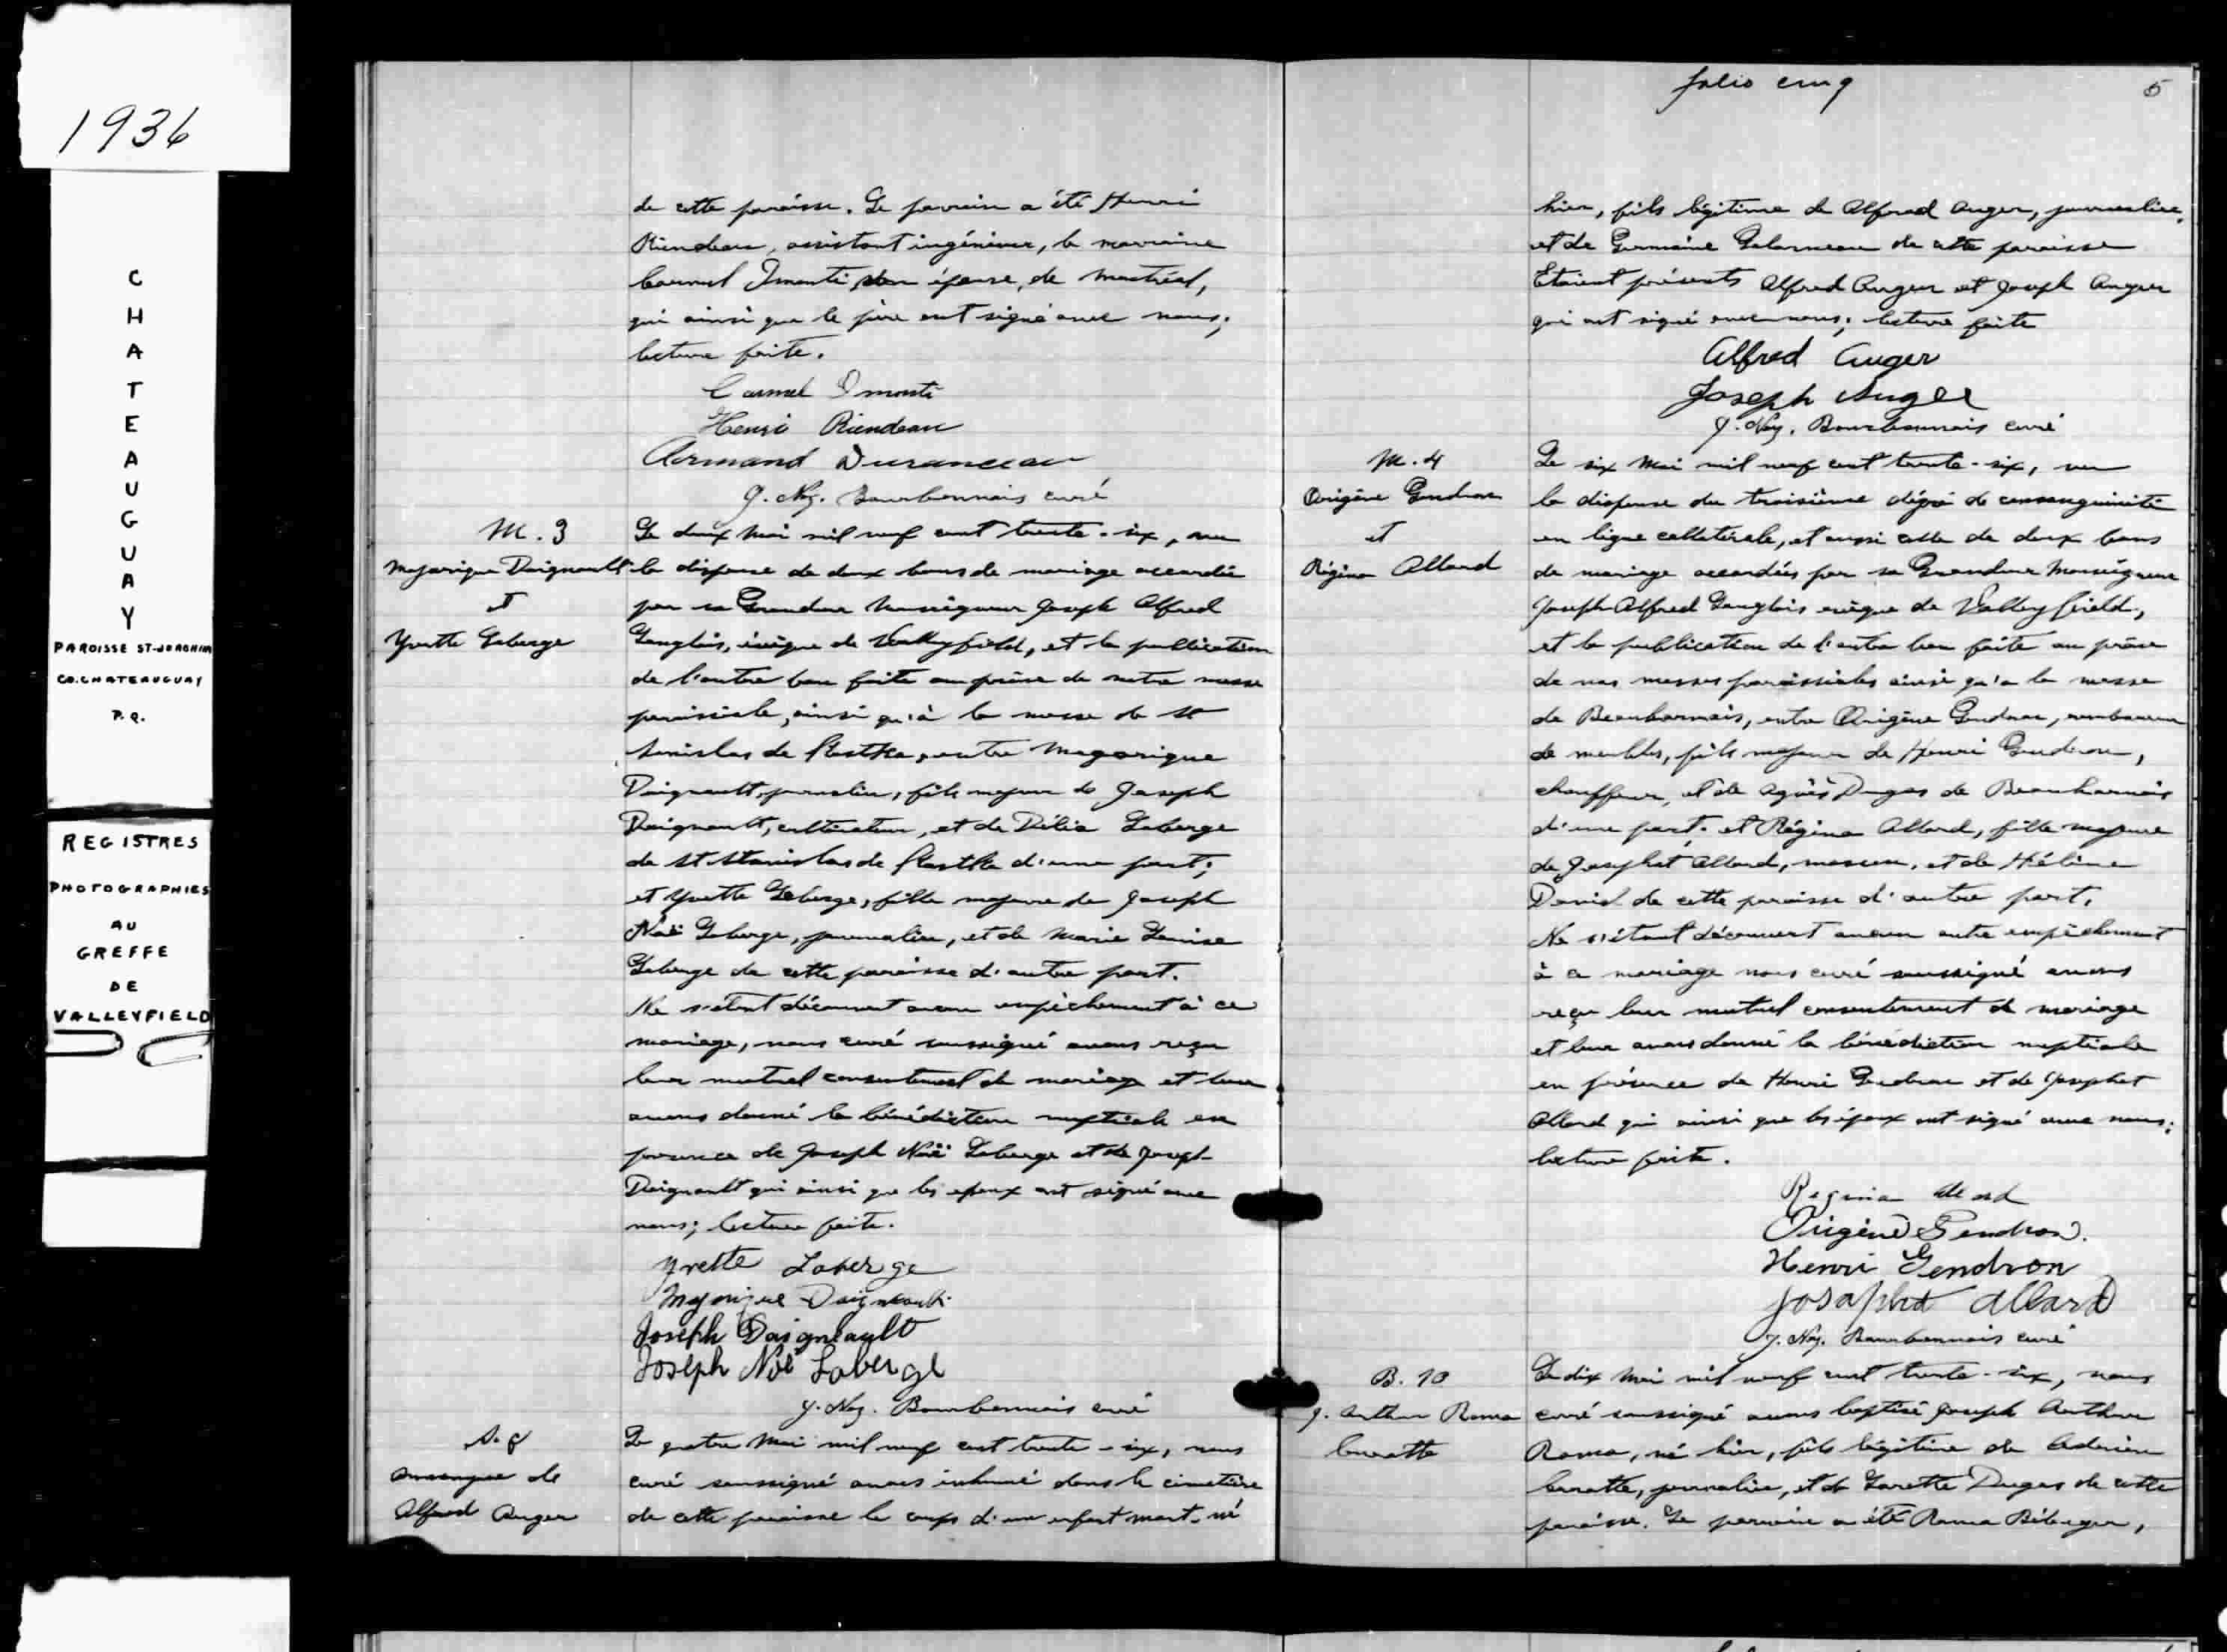 1936
CHATEAUGUAY
PAROISSE ST-JOACHIM
CO. CHATEAUGUAY
P.Q.
REGISTRES
PHOTOGRAPHIES
AU
GREFFE
DE
VALLEYFIELD
de cette paroisse. Le parrain a été Henri
Riendeau, assistant ingénieur, la marraine
Carmel Imonti, son épouse, de Montréal,
qui ainsi que le père ont signé avec nous;
lecture faite.
Carmel Imonti
Henri Riendeau
Armand Duranceau
J. Naz. Bourbonnais curé
M. 3
Majorique Daignault
et
Yvette Laberge
Le deux Mai mil neuf cent trente-six, vu
la dispense de deux bans de mariage accordée
par sa Grandeur Monseigneur Joseph Alfred
Langlois, évêque de Valleyfield, et la publication
de l'autre ban faite au prône de notre messe
paroissiale, ainsi qu'à la messe de St
Stanislas de Kostka, entre Magorique
Daignault, journalier, fils majeur de Joseph
Daignault, cultivateur, et de Délia Laberge
de St Stanislas de Kostka d'une part;
et Yvette Laberge, fille majeure de Joseph
Noë Laberge, journalier, et de Marie Louise
Laberge de cette paroisse d'autre part.
Ne s'étant découvert aucun empêchement à ce
mariage, nous curé soussigné avons reçu
leur mutuel consentement de mariage et leur
avons donné la bénédiction nuptiale en
présence de Joseph Noë Laberge et de Joseph
Daignault qui ainsi que les époux ont signé avec
nous; lecture faite.
Yvette Laberge
Majorique Daigneault
Joseph Daigneault
Joseph Noë Laberge
J. Naz. Bourbonnais curé
S. 8
Anonyme de
Alfred Auger
Le quatre Mai mil neuf cent trente-six, nous
curé soussigné avons inhumé dans le cimetière
de cette paroisse le corps d'un enfant mort-né
folio cinq 5
hier, fils légitime de Alfred Auger, journalier,
et de Germaine Galarneau de cette paroisse
Etaient présents Alfred Auger et Joseph Auger
qui ont signé avec nous; lecture faite
Alfred Auger
Joseph Auger
J. Naz. Bourbonnais curé
M. 4
Origène Gendron
et
Régina Allard
Le six Mai mil neuf cent trente-six, vu
la dispense du troisième dégré de consanguinité
en ligne collatérale, et aussi celle de deux bans
de mariage accordées par sa Grandeur Monseigneur
Joseph Alfred Langlois évêque de Valleyfield,
et la publication de l'autre ban faite au prône
de nos messes paroissiales ainsi qu'à la messe
de Beauharnois, entre Origène Gendron, rembourreur
de meubles, fils majeur de Henri Gendron,
chauffeur, et de Agnès Dugas de Beauharnois
d'une part. et Régina Allard, fille majeure
de Josaphat Allard, maçon, et de Hélène
David de cette paroisse d'autre part.
Ne s'étant découvert aucun autre empêchement
à ce mariage nous curé soussigné avons
reçu leur mutuel consentement de mariage
et leur avons donné la bénédiction nuptiale
en présence de Henri Gendron et de Josaphat
Allard qui ainsi que les époux ont signé avec nous;
lecture faite.
Regina Allard
Origène Gendron.
Henri Gendron
Josaphat Allard
J. Naz. Bourbonnais curé
B. 10
J. Arthur Roma
Le dix Mai mil neuf cent trente-six, nous
curé soussigné avons baptisé Joseph Arthur
Roma, né hier, fils légitime de
journalier, et de Laurette Dugas de cette
paroisse. Le parrain a été Roma Bélanger,